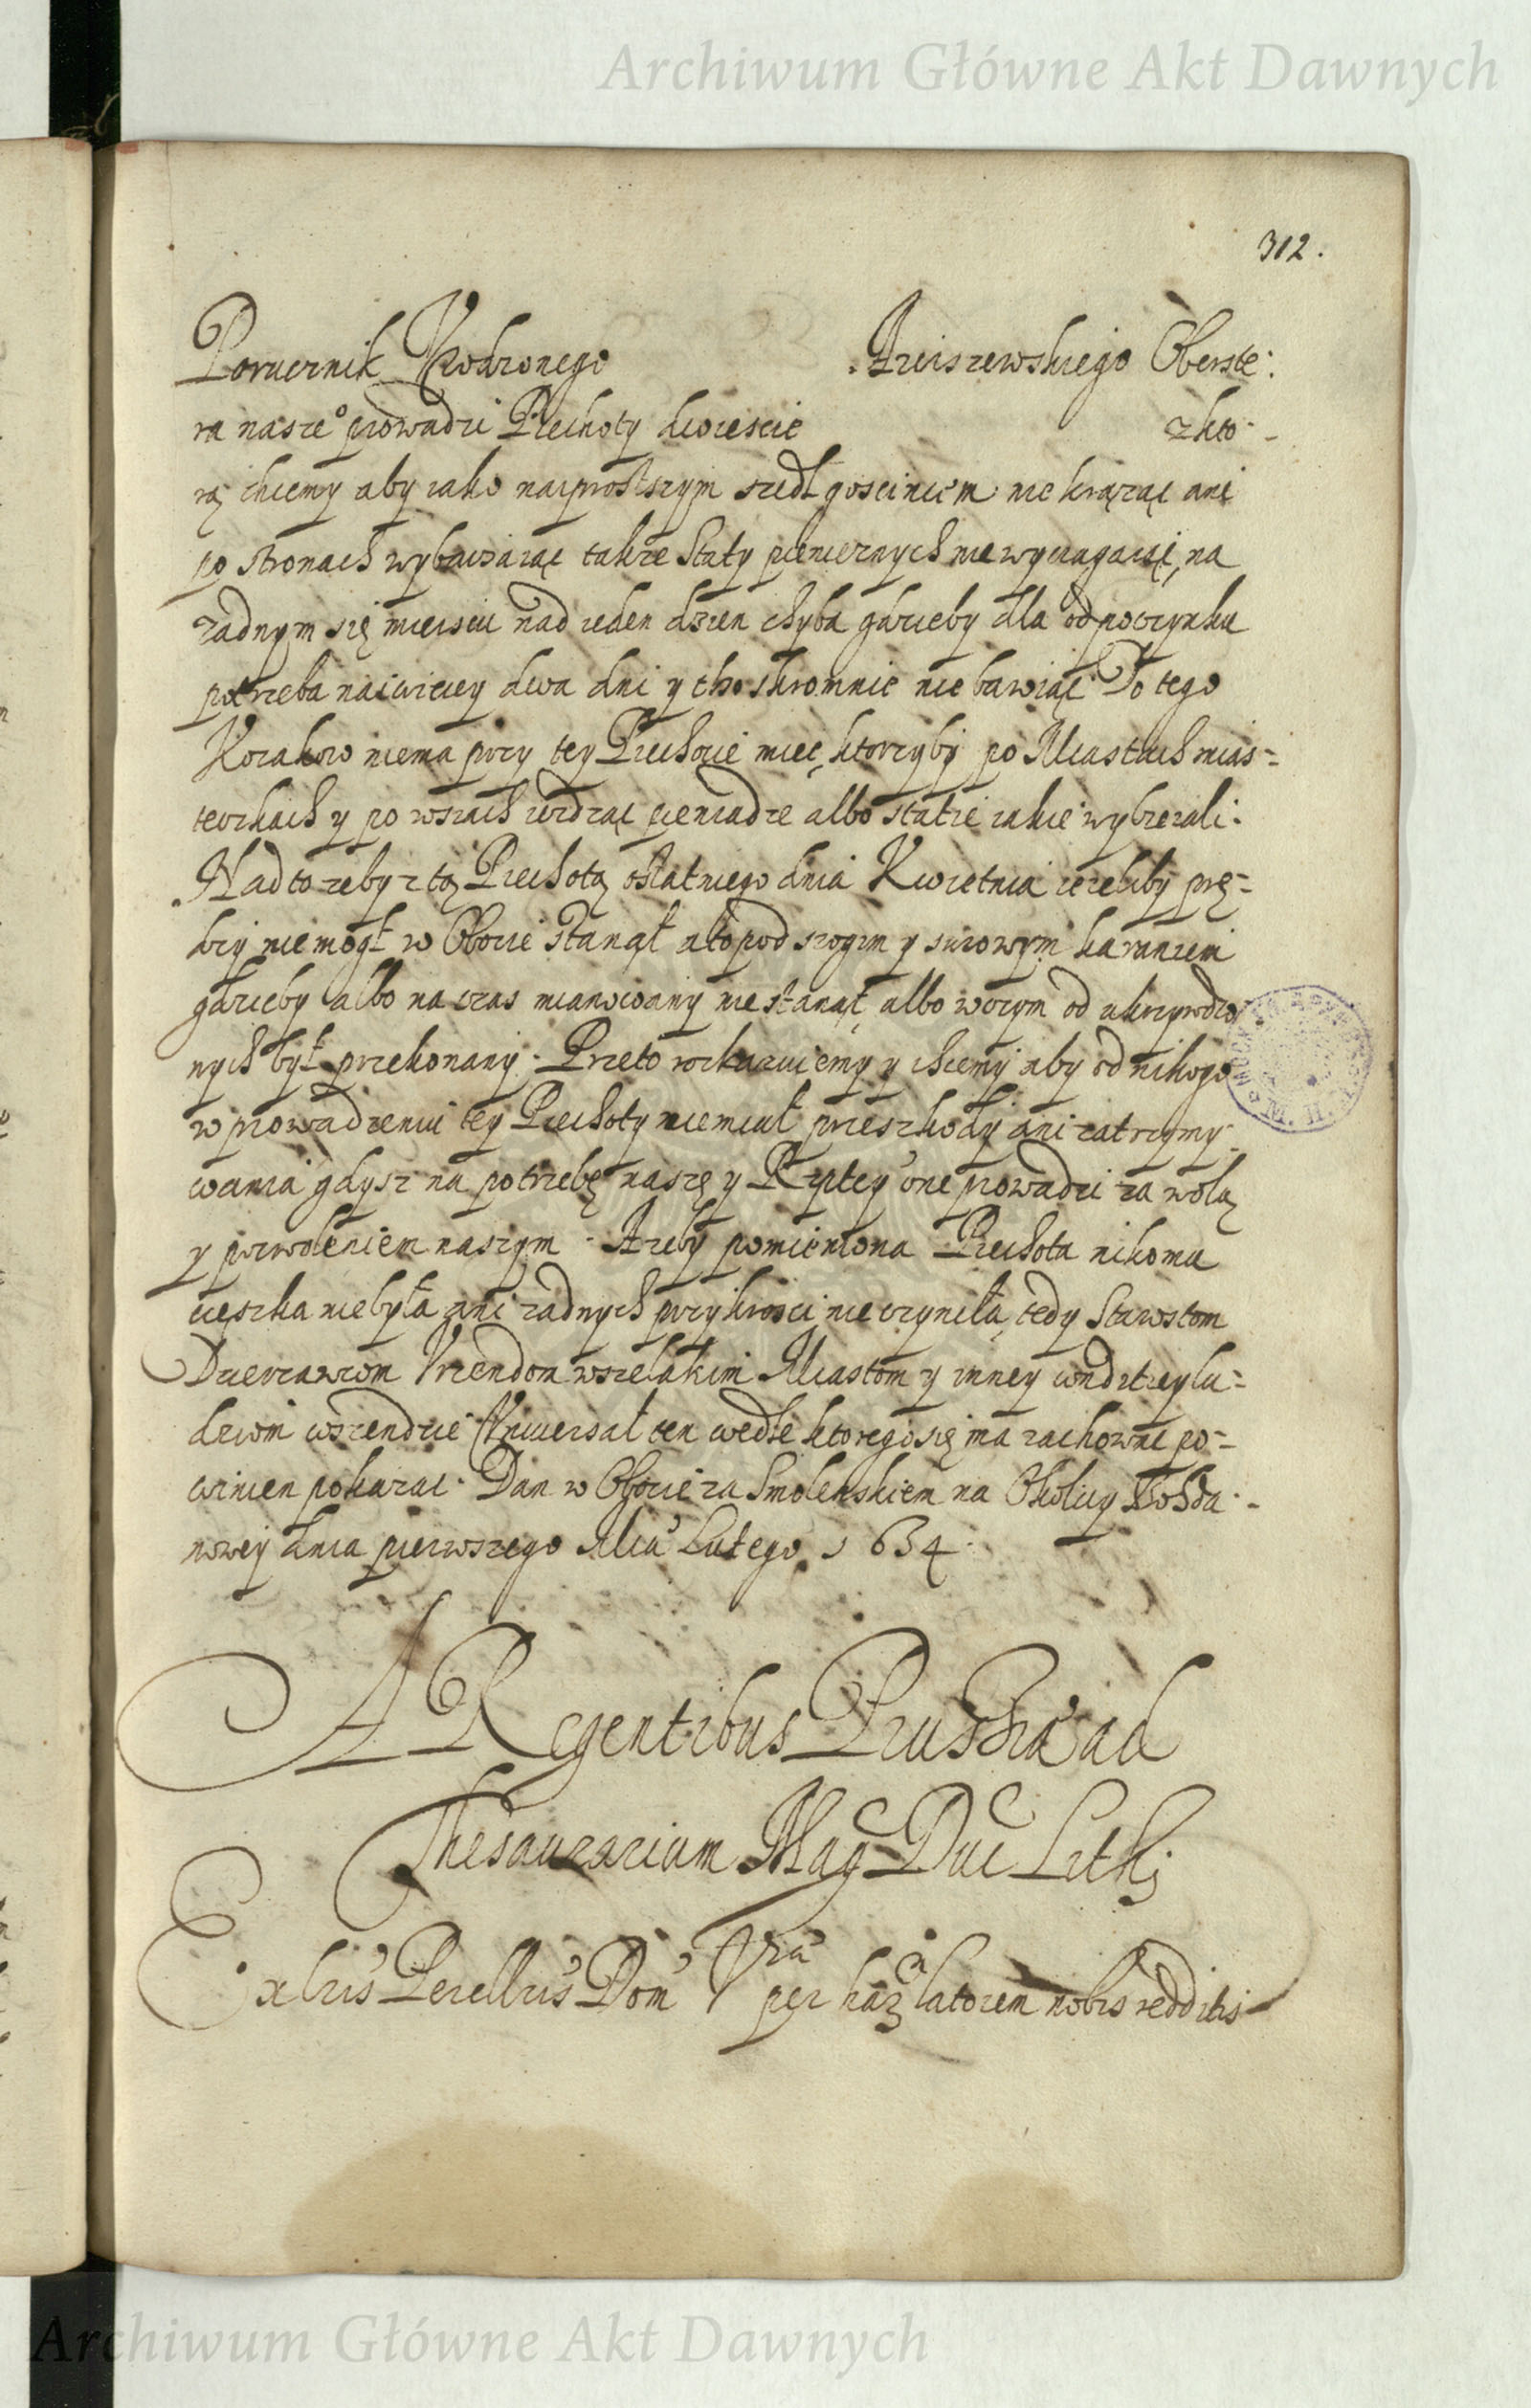 Archiwum Główne Akt Dawnych
312.
Porucznik Vrodzonego Arciszewskiego Oberste:
ra nasze° prowadzi Piechoty dwiescie zkto-
rą chcemy aby iako naiprostszym szedł goscincem nie krążąc ani
po stronach wybaczaiąc także Staty pieniężnych niewyciągaiąc, na
żadnym się mieiscu nad ieden dzien chyba gdzieby dla odpoczynku
potrzeba naiwiecey dwa dni y tho skromnie nie bawiąc. Do tego
Kozakow niema przy tey Piechocie miec, ktorzyby po Miastach mias-
teczkach y po wsiach iezdząc pieniadze albo statie iakie wybierali.
Nadto zeby z tą Piechotą ostatniego dnia Kwietnia iezeliby prę-
dzy niemogł w Obozie stanął a to pod srogim y surowym karaniem
gdzieby albo na czas mianowany nie stanął, albo wczym od ukrzywdzo
nych był przekonany. Przeto rozkazuiemy y chcemy aby od nikogo
w prowadzeniu tey Piechoty niemiał przeszkody ani zatrzymy-
wania gdysz na potrzebę naszę y Rzptey one prowadzi za wolą
y pozwoleniem naszym. Azeby pomieniona Piechota nikomu
cięszka niebyła ani zadnych przykrosci nieczyniła, tedy Starostom
Dzierzawcom Vrzendom wszelakim Miastom y inney condityey lu-
dziom wszendzie Vniuersał ten wedle ktorego się ma zachować po-
winien pokazac. Dan w Obozie za Smolenskiem na Okolicy Bohda-
nowey dnia pierwszego Mca Lutego 1634.
A Regentibus Prussia ad
Thesaurarium Mag Duc Lith
Ex lris Perillris Dom Vra per haz latorem nobis redditis
Archiwum Główne Akt Dawnych